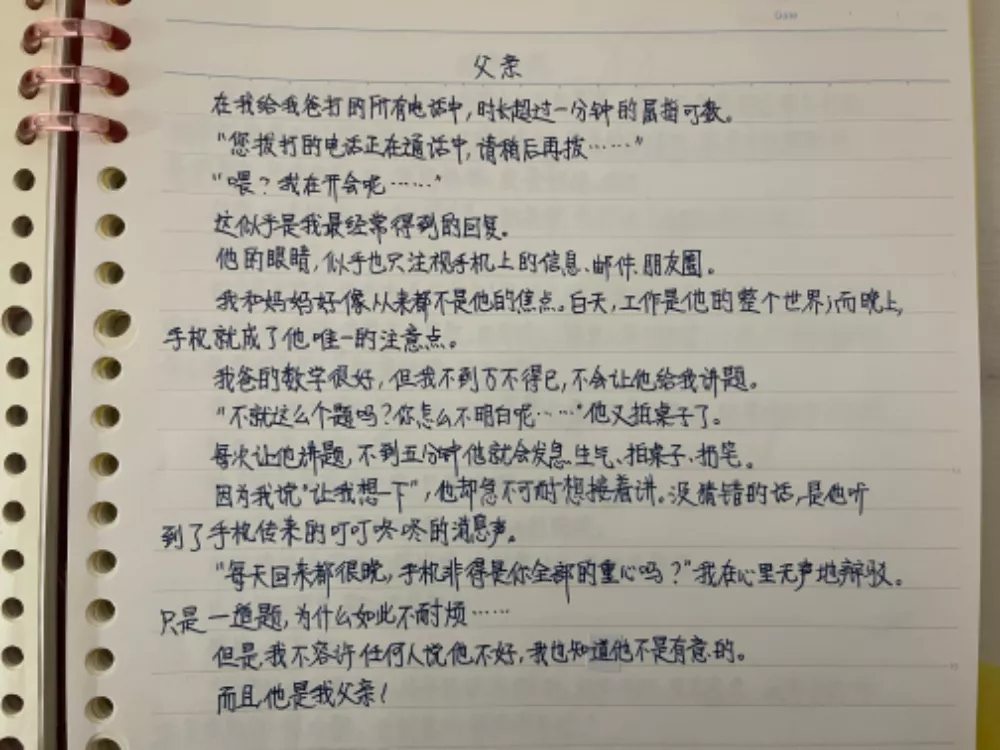 父亲
在我给我爸打的所有电话中,时长超过一分钟的屈指可数。
“您拨打的电话正在通话中,请稍后再拨……”
“喂?我在开会呢……”
这似乎是我最经常得到的回复。
他的眼睛,似乎也只注视手机上的信息、邮件、朋友圈。
我和妈妈好像从来都不是他的焦点。白天,工作是他的整个世界;而晚上,
手机就成了他唯一的注意点。
我爸的数学很好,但我不到万不得已,不会让他给我讲题。
“不就这么个题吗?你怎么不明白呢……”他又拍桌子了。
每次让他讲题,不到五分钟他就会发急、生气、拍桌子、扔笔。
因为我说“让我想一下”,他却急不可耐想接着讲。没猜错的话,是他听
到了手机传来的叮叮咚咚的消息声。
“每天回来都很晚,手机非得是你全部的重心吗?”我在心里无声地辩驳。
只是一道题,为什么如此不耐烦……
但是,我不容许任何人说他不好,我也知道他不是有意的。
而且,他是我父亲!